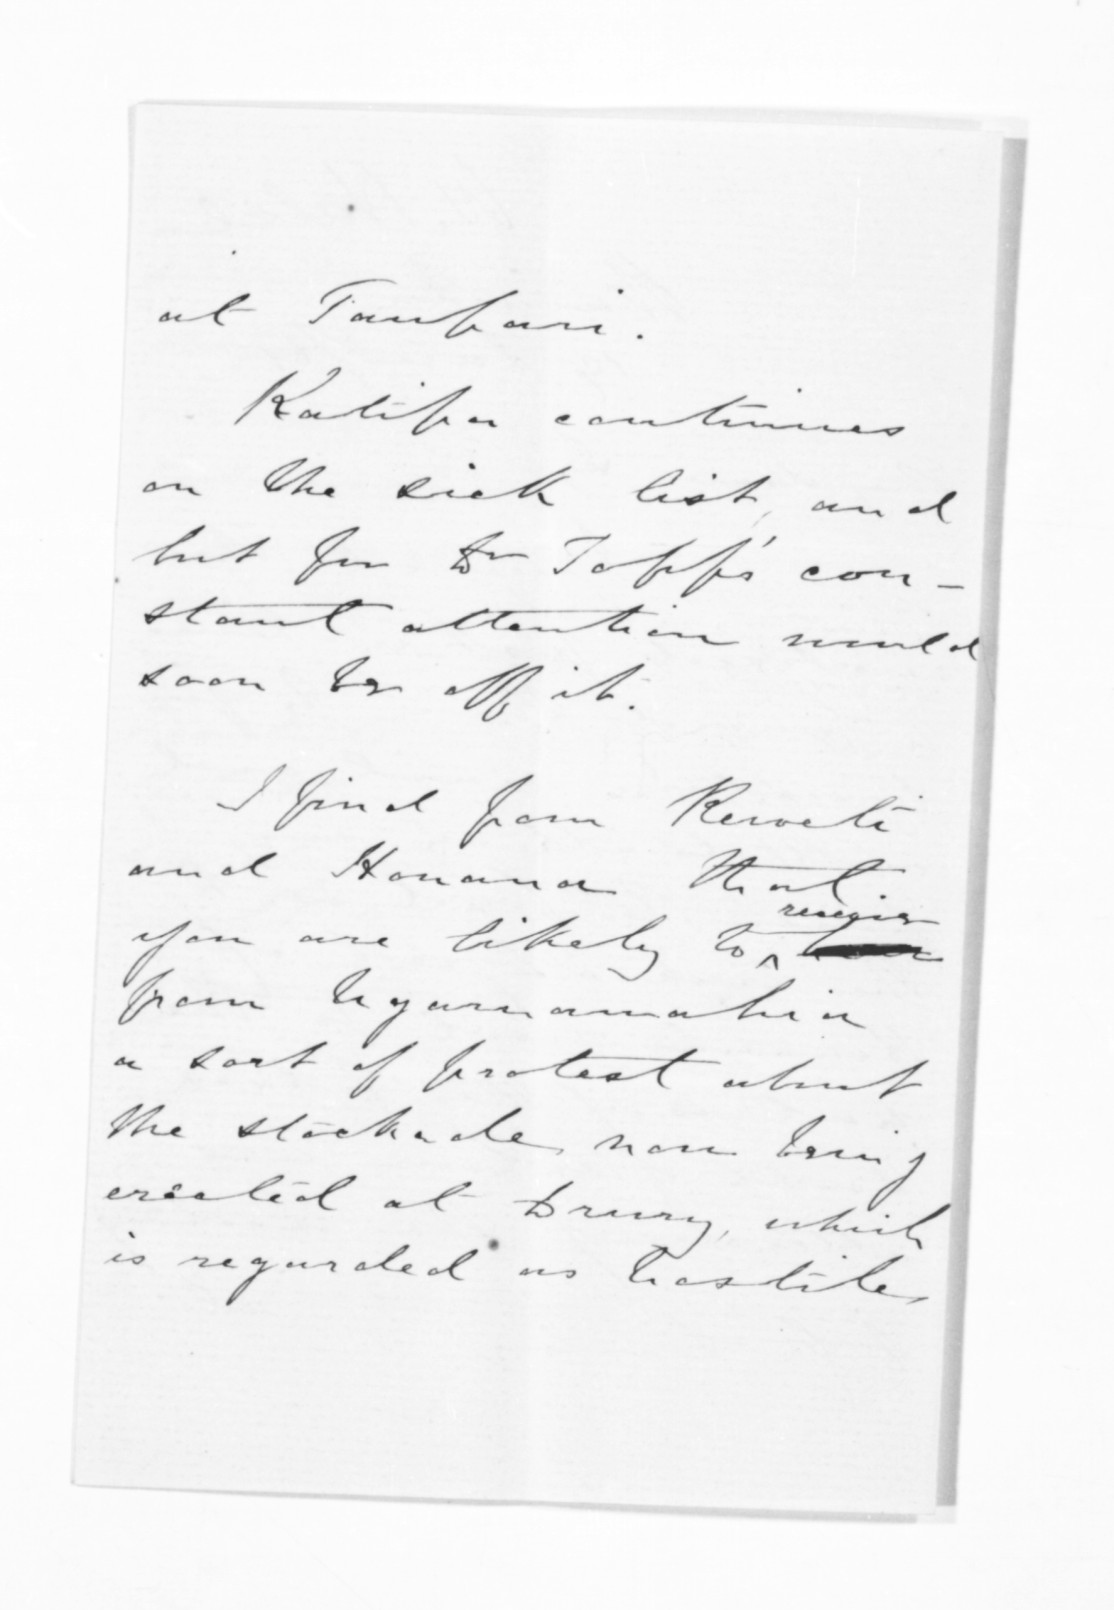 at Taupari.
Katipa continues
on the sick list, and
but for Dr Topp's con-
stant attention would
soon be off it.
I find from Reweti
and Honana that
you are likely to receive
from Ngaruawahia
a sort of protest about
the stockade now being
erected at Drury, which
is regarded as hostile,